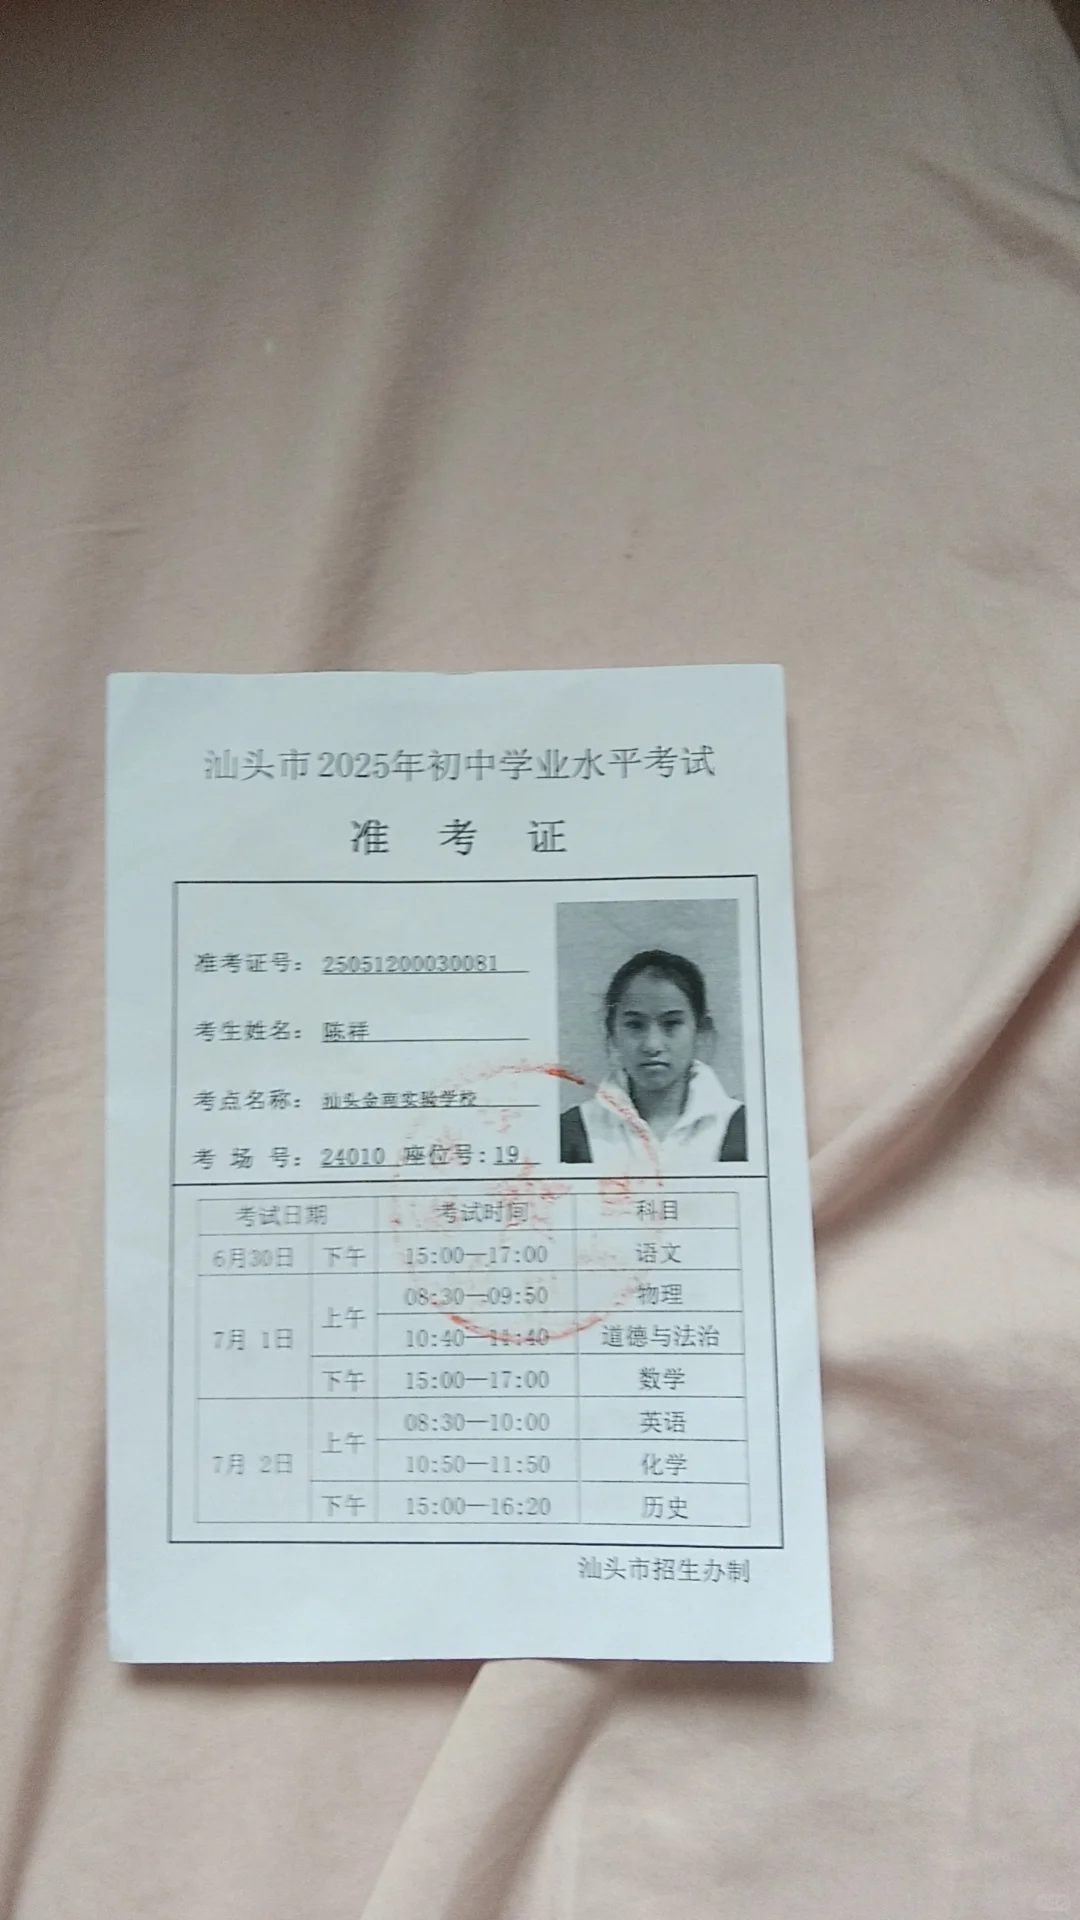 汕头市2025年初中学业水平考试
准 考 证
准考证号: 25051200030081
考生姓名: 陈祥
考点名称: 汕头金南实验学校
考 场 号: 24010 座位号: 19
考试日期 考试时间 科目
6月30日 下午 15:00—17:00 语文
7月 1日 上午 08:30—09:50 物理
10:40—11:40 道德与法治
下午 15:00—17:00 数学
7月 2日 上午 08:30—10:00 英语
10:50—11:50 化学
下午 15:00—16:20 历史
汕头市招生办制